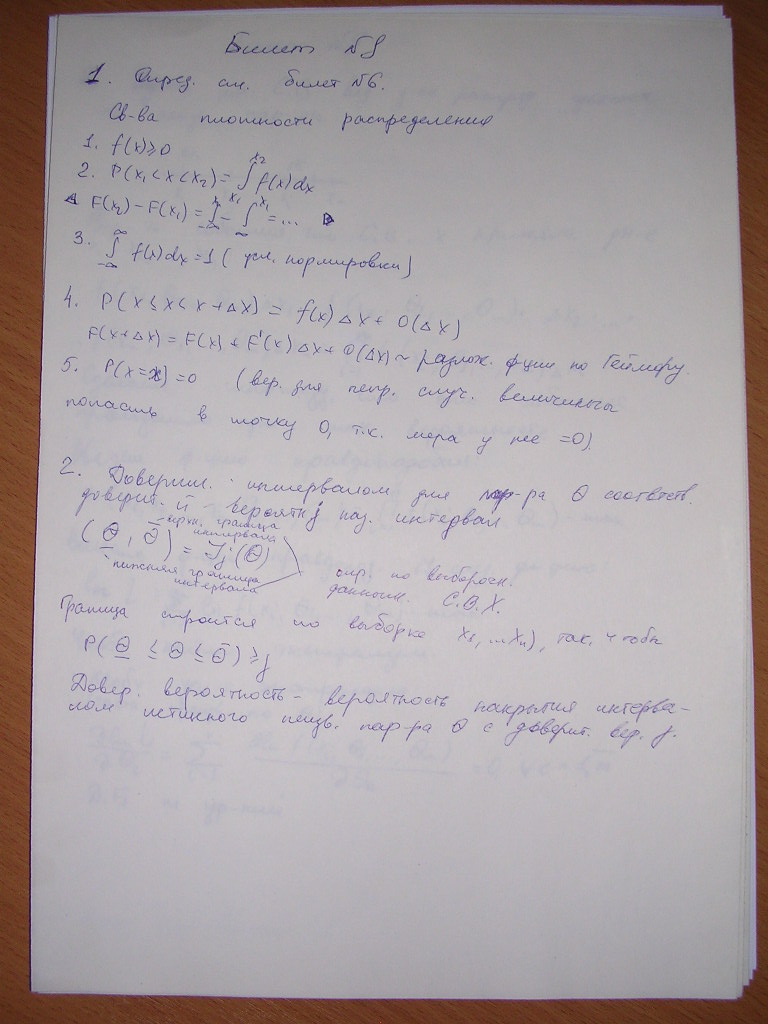 Билет №8
1. Опред. см. билет №6.
Св-ва плотности распределения
1. f(x)≥0
2. P(x₁<x<x₂)=∫_{x₁}^{x₂} f(x)dx
◁ F(x₂)-F(x₁)=∫_{-∞}^{x₂}-∫_{-∞}^{x₁}=... ▷
3. ∫_{-∞}^{∞} f(x)dx=1 (усл. нормировки)
4. P(x≤X<x+Δx) = f(x)Δx+O(Δx)
F(x+Δx)=F(x)+F'(x)Δx+O(Δx) ~ разлож. ф-ции по Тейлору.
5. P(X=x)=0 (вер. для непр. случ. величины
попасть в точку 0, т.к. мера у нее =0).
2. Доверит. интервалом для пар-ра Θ соответств.
доверит. вероятн γ наз. интервал
верхн. граница
интервала
(Θ̲, Θ̄) = J_γ(Θ)
нижняя граница
интервала
опр. по выборочн.
данным. С.В.Х.
Граница строится по выборке x₁,...xₙ), так, чтобы
P(Θ̲ ≤ Θ ≤ Θ̄) ≥ γ
Довер. вероятность - вероятность накрытия интерва-
лом истинного неизв. пар-ра Θ с доверит. вер. γ.